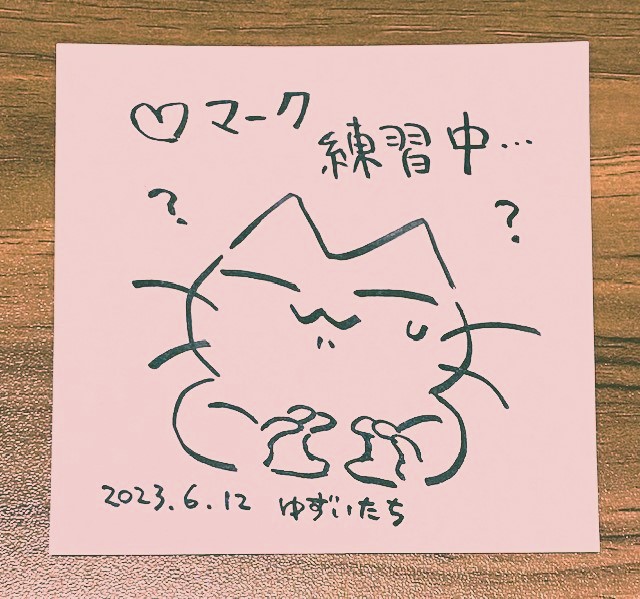 ♡マーク
練習中…
?
?
2023.6.12 ゆずいたち